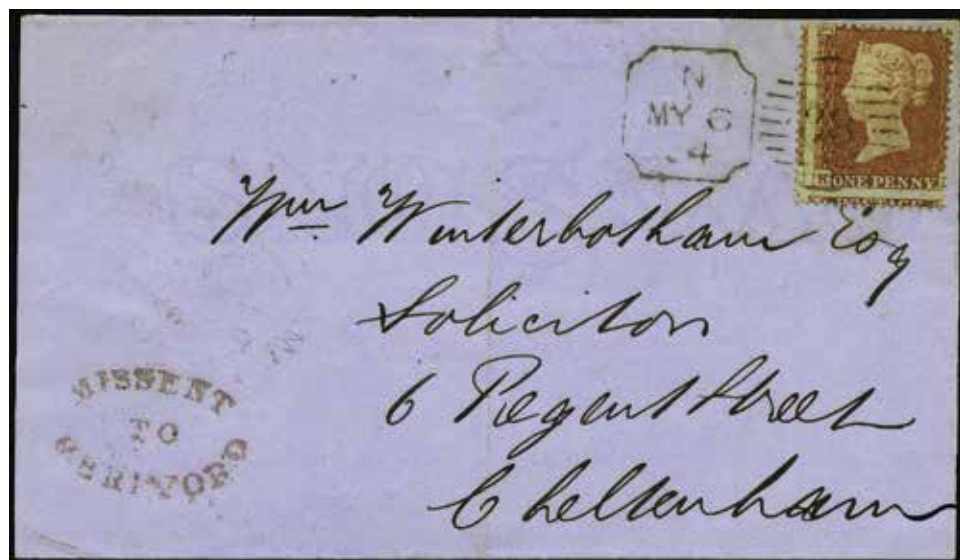 N
MY 6
4
H ONE PENNY
Wm Winterbotham Esq
Solicitor
6 Regent Street
Cheltenham
MISSENT
TO